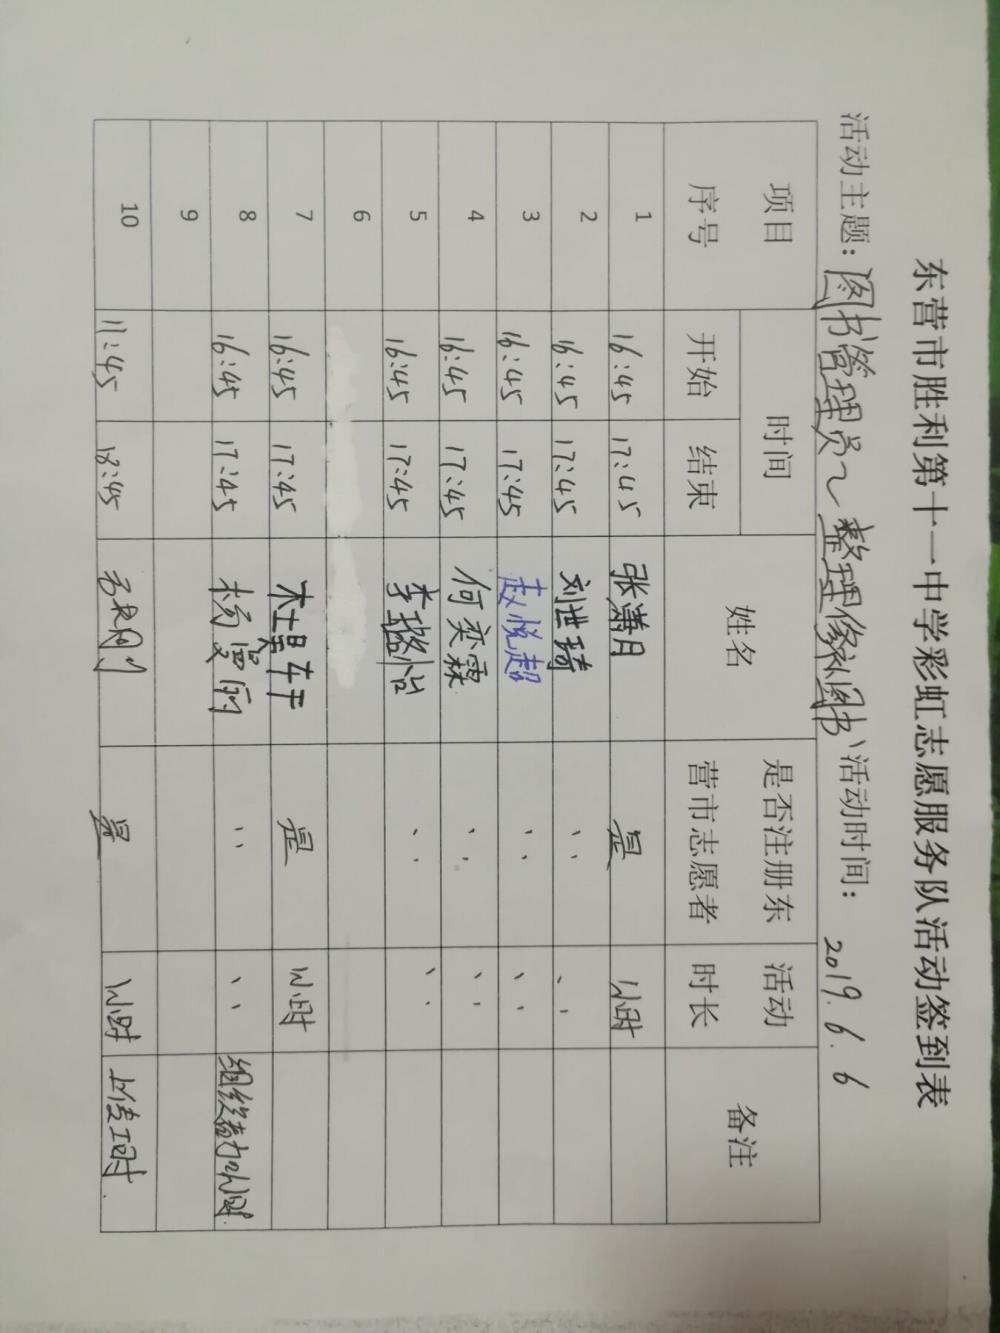 东营市胜利第十一中学彩虹志愿服务队活动签到表
活动主题：图书管理员～整理修补图书、活动时间： 2019.6.6
项目 时间 姓名 是否注册东营市志愿者 活动时长 备注
序号 开始 结束
1 16:45 17:45 张潇月 是 1小时
2 16:45 17:45 刘世琦 、、 、、
3 16:45 17:45 赵悦超 、、 、、
4 16:45 17:45 何奕霖 、、 、、
5 16:45 17:45 李璐怡 、、 、、
6
7 16:45 17:45 是 1小时
8 16:45 17:45 杨雯丽 、、 、、 组织者为2小时
9
10 11:45 18:45 是 1小时